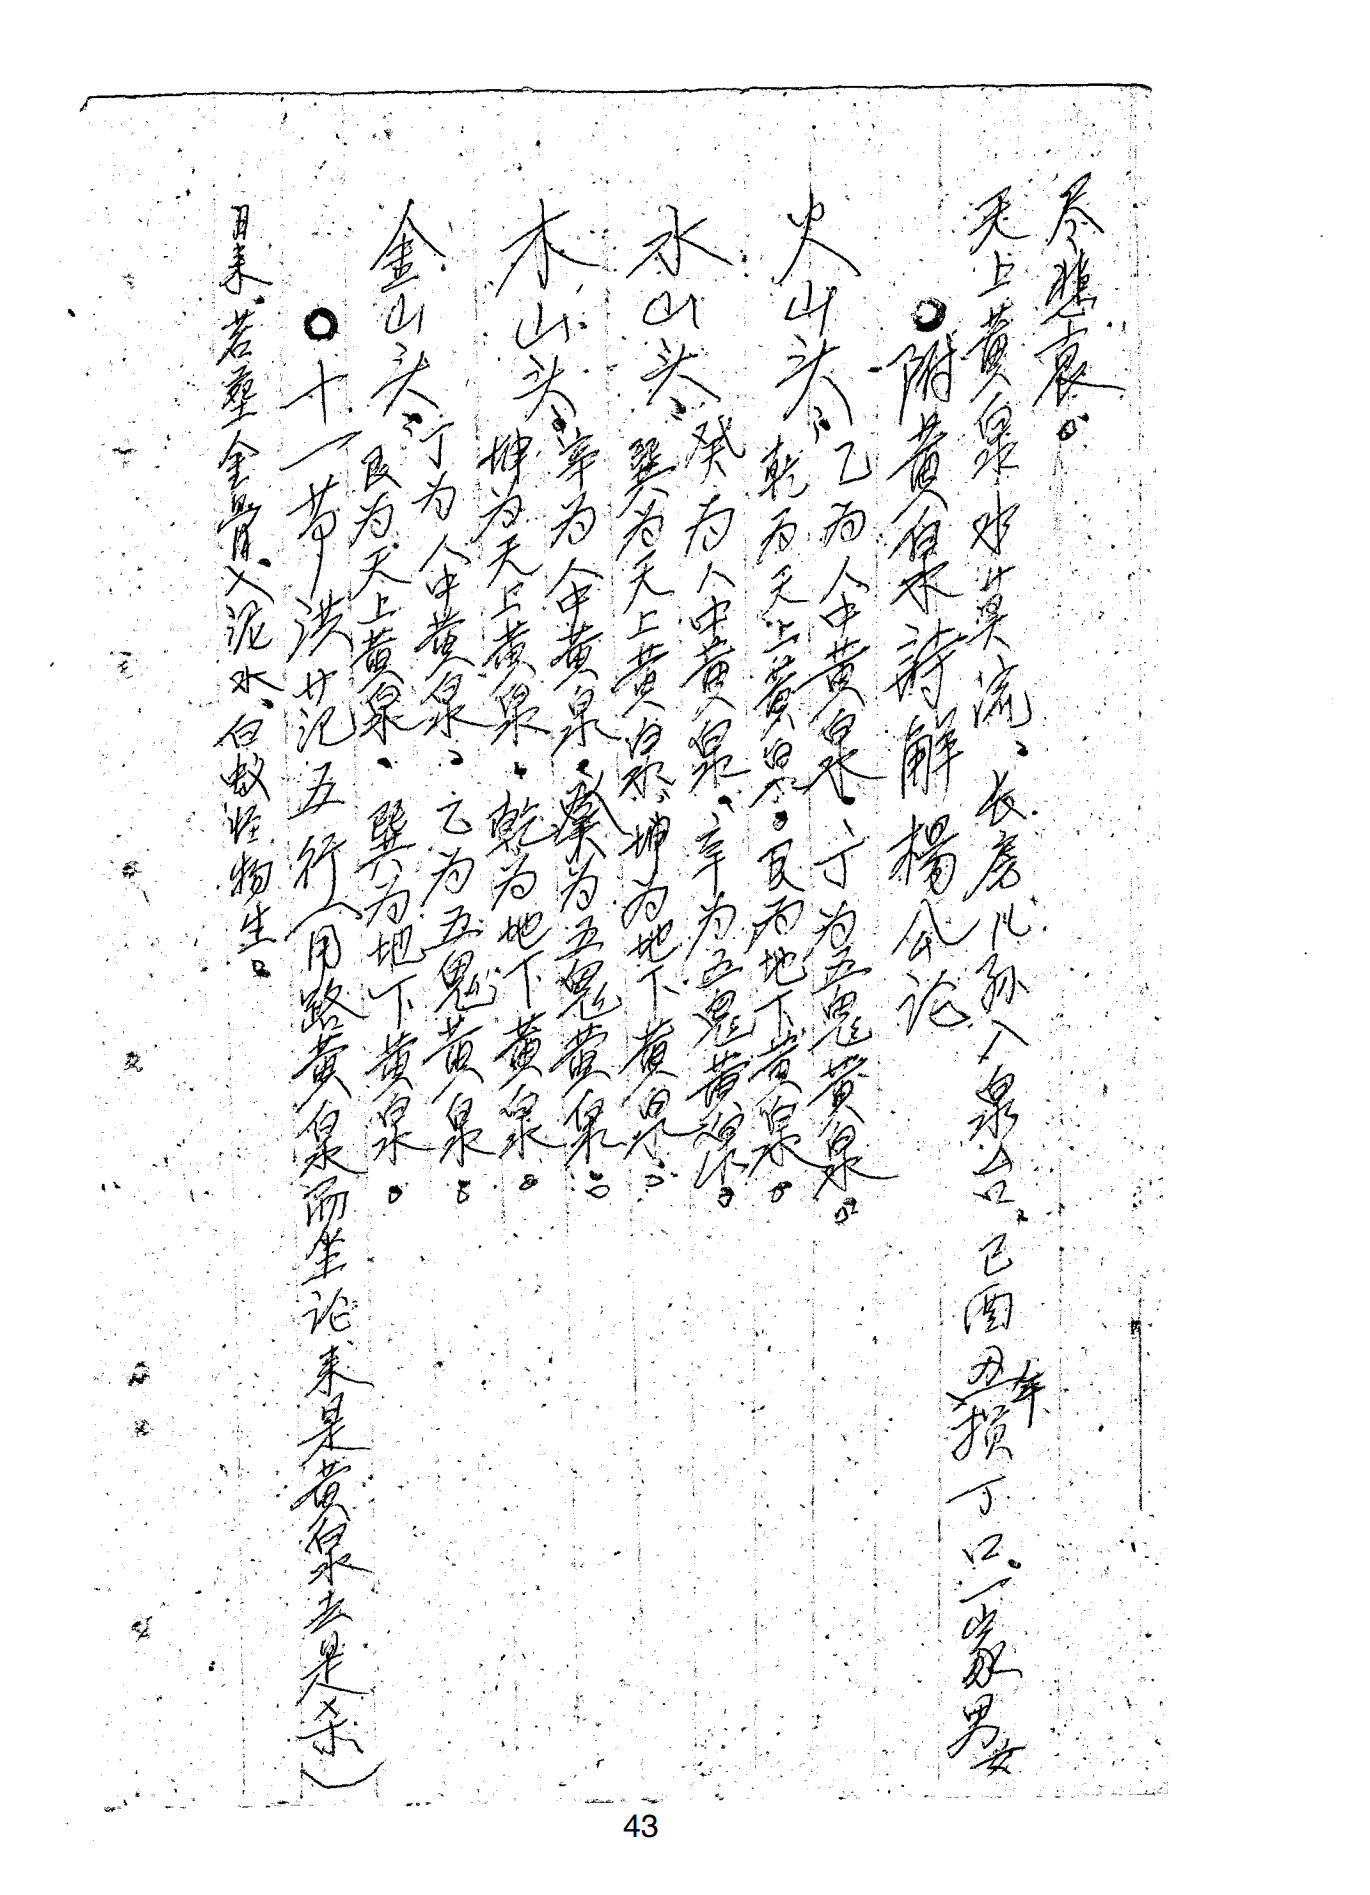 尽悲哀。
天上黄泉水莫流、长房儿孙入泉台。巳酉丑年损丁口。一家男女
附黄泉水詩解 楊公论
火山头、
乙为人中黄泉、丁为五鬼黄泉。
乾为天上黄泉。艮为地下黄泉。
水山头、
癸为人中黄泉、辛为五鬼黄泉。
巽为天上黄泉、坤为地下黄泉。
木山头。
辛为人中黄泉、癸为五鬼黄泉。
坤为天上黄泉、乾为地下黄泉。
金山头、
丁为人中黄泉、乙为五鬼黄泉。
艮为天上黄泉、巽为地下黄泉。
十一节 洪范五行(用路黄泉而坐论来是黄泉去是杀)
目来、若塟金骨、入泥水、白蚁怪物生。
43